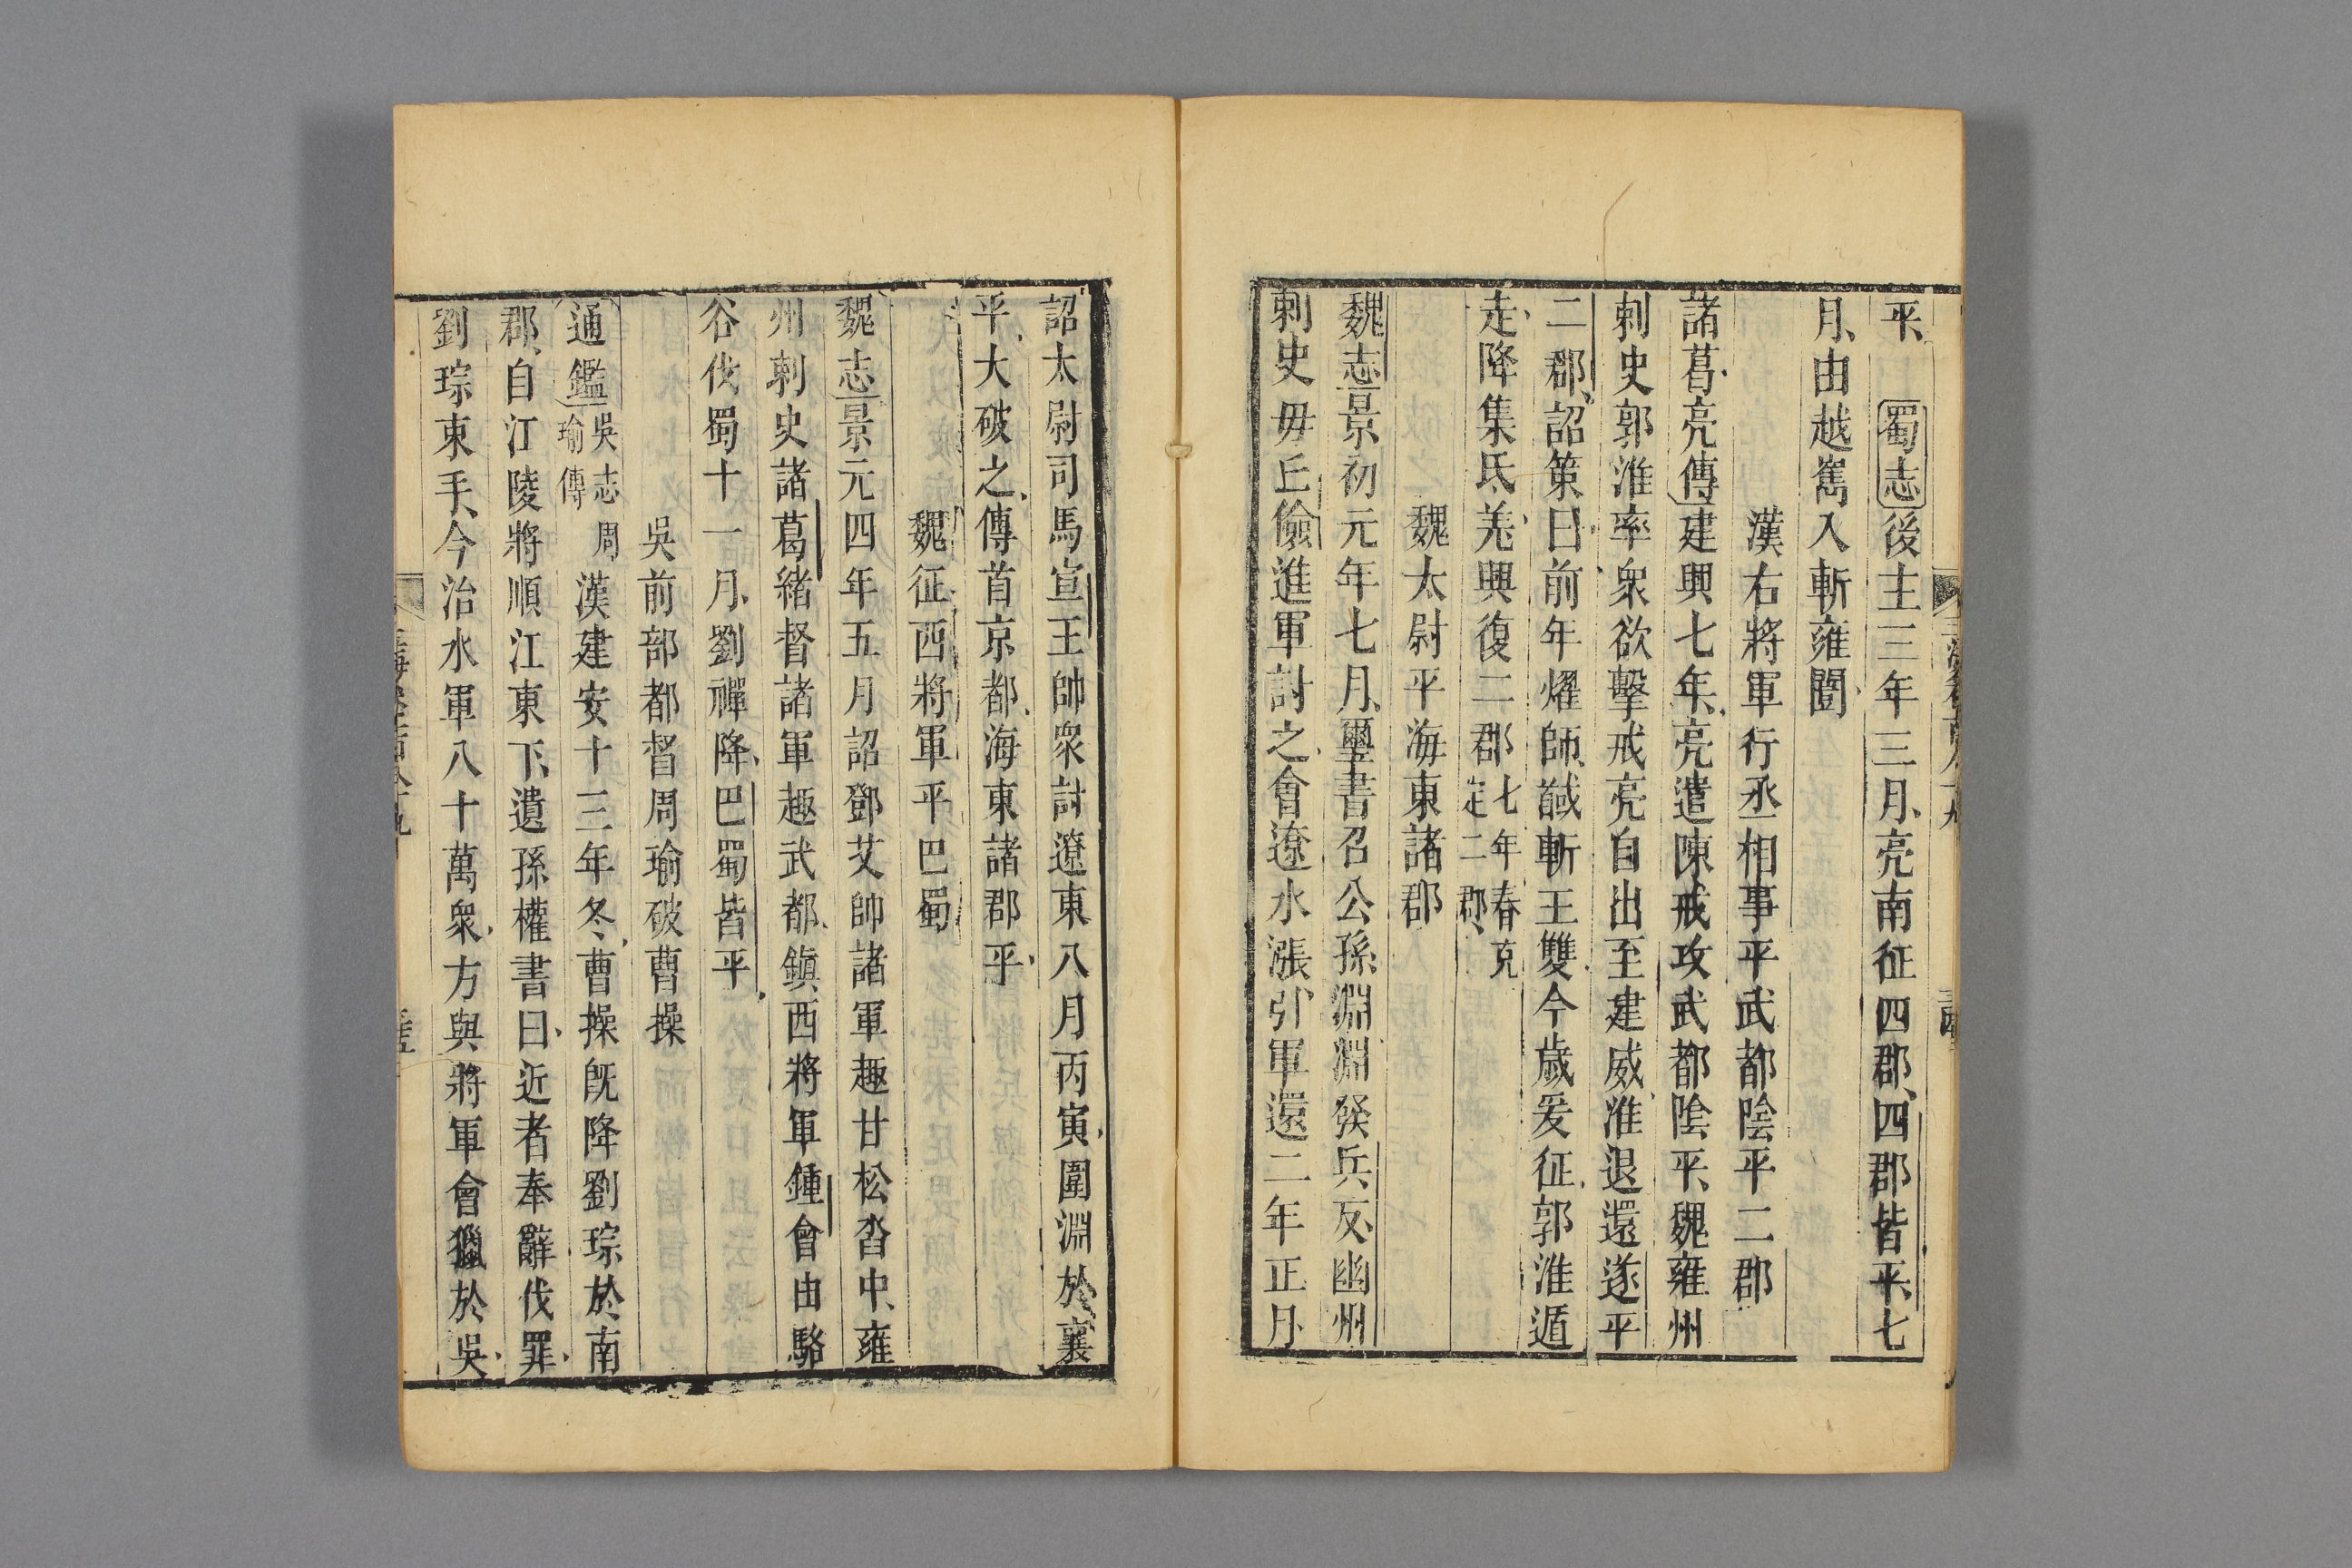 平蜀志後主三年三月亮南征四郡四郡皆平七
月由越嶲入斬雍闓
漢右將軍行丞相事平武都陰平二郡
諸葛亮傳建興七年亮遣陳戒攻武都陰平魏雍州
刺史郭淮率衆欲擊戒亮自出至建威淮退還遂平
二郡詔策曰前年燿師馘斬王雙今歲爰征郭淮遁
走降集氐羌興復二郡七年春克定二郡
魏太尉平海東諸郡
魏志景初元年七月璽書召公孫淵淵發兵反幽州
刺史毋丘儉進軍討之會遼水漲引軍還二年正月
詔太尉司馬宣王帥衆討遼東八月丙寅圍淵於襄
平大破之傳首京都海東諸郡平
魏征西將軍平巴蜀
魏志景元四年五月詔鄧艾帥諸軍趣甘松沓中雍
州刺史諸葛緒督諸軍趣武都鎮西將軍鍾會由駱
谷伐蜀十一月劉禪降巴蜀皆平
吳前部都督周瑜破曹操
通鑑吳志周瑜傳漢建安十三年冬曹操旣降劉琮於南
郡自江陵將順江東下遺孫權書曰近者奉辭伐罪
劉琮束手今治水軍八十萬衆方與將軍會獵於吳